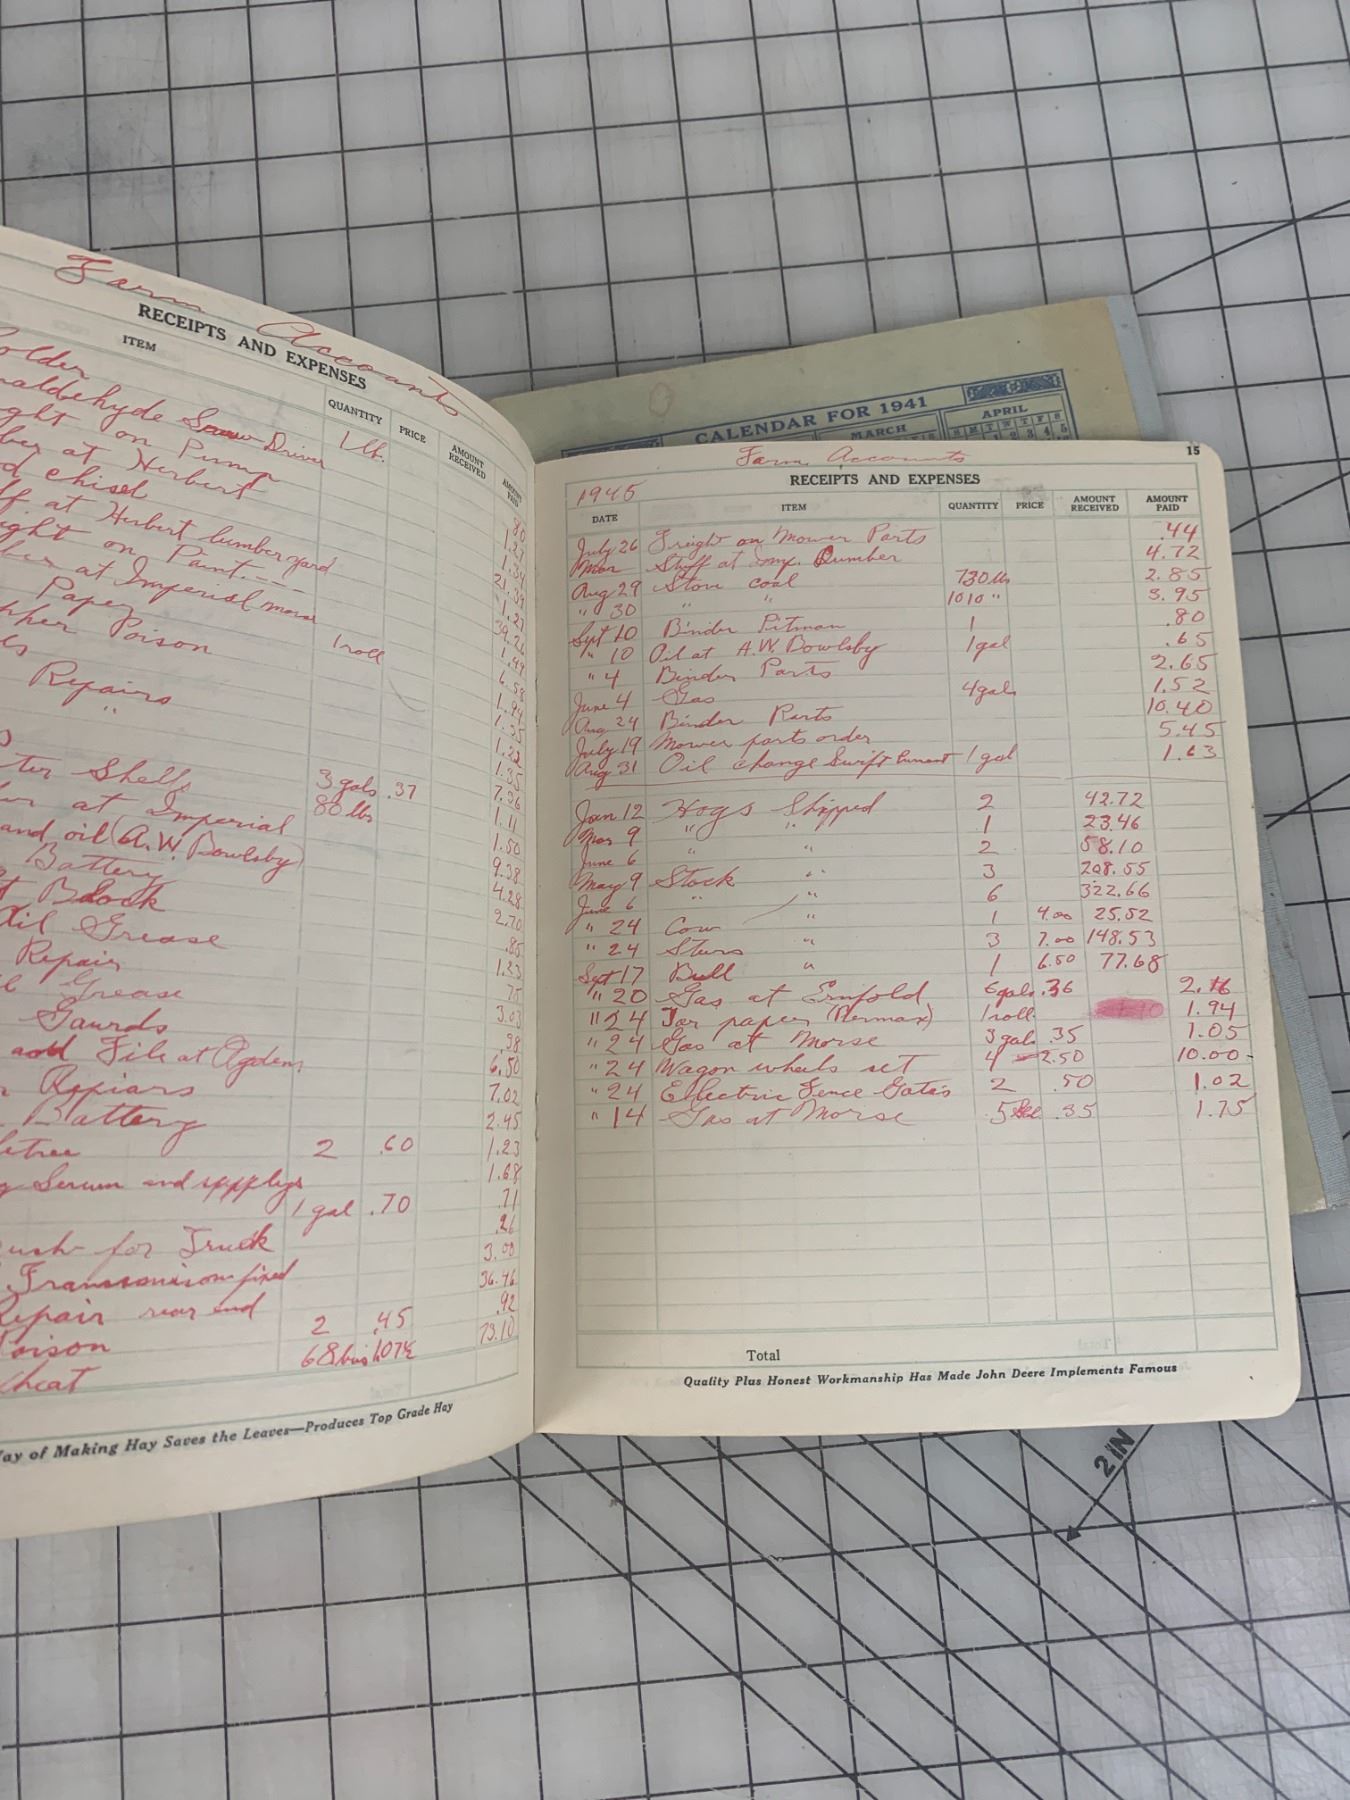 Farm Accounts
RECEIPTS AND EXPENSES
ITEM QUANTITY PRICE AMOUNT RECEIVED AMOUNT PAID
older
naldehyde Screw Driver 1 lb. .80
ght on Pump
ber at Herbert
d chisel
ff at Herbert lumber yard
ight on Paint.
ber at Imperial
Paper 1 roll
pher Poison
es
Repairs
"
ter Shells 3 gals .37
er at Imperial 80 lbs
and oil (A.W. Bowlsby) 1.50
Battery 9.38
t Block 4.28
Oil Grease 2.70
Repair .85
Grease 1.23
Gaurds .75
and File at Ogdens 3.03
Repiars .98
Battery 6.50
etree 2 .60 7.02
g Serum and sppplys 2.45
1 gal .70 1.23
ush for Truck 1.68
Transmision fixed .71
Repair rear end .26
Poison 2 .45 3.00
heat 68 bus 36.46
.92
73.10
Way of Making Hay Saves the Leaves—Produces Top Grade Hay
CALENDAR FOR 1941
MARCH APRIL
S M T W T F S
1 2 3 4 5
Farm Accounts 15
1945 RECEIPTS AND EXPENSES
DATE ITEM QUANTITY PRICE AMOUNT RECEIVED AMOUNT PAID
July 26 Freight on Mower Parts .44
Mar Stuff at Imp. Lumber 4.72
Aug 29 Stove coal 730 lbs 2.85
" 30 " " 1010 " 3.95
Sept 10 Binder Pitman 1 .80
" 10 Oil at A.W. Bowlsby 1 gal .65
" 4 Binder Parts 2.65
June 4 Gas 4 gals 1.52
Aug 24 Binder Parts 10.40
July 19 Mower parts order 5.45
Aug 31 Oil change Swift Current 1 gal 1.63
Jan 12 Hogs Shipped 2 42.72
Mar 9 " " 1 23.46
June 6 " " 2 58.10
May 9 Stock " 3 208.55
June 6 " " 6 322.66
" 24 Cow " 1 4.00 25.52
" 24 Sturs " 3 7.00 148.53
Sept 17 Bull " 1 6.50 77.68
" 20 Gas at Ernfold 6 gals .36 2.16
" 24 Tar paper (Permax) 1 roll 1.94
" 24 Gas at Morse 3 gal. .35 1.05
" 24 Wagon wheels set 4 2.50 10.00
" 24 Ellectric Fence Gates 2 .50 1.02
" 14 Gas at Morse 5 .35 1.75
Total
Quality Plus Honest Workmanship Has Made John Deere Implements Famous
2 IN